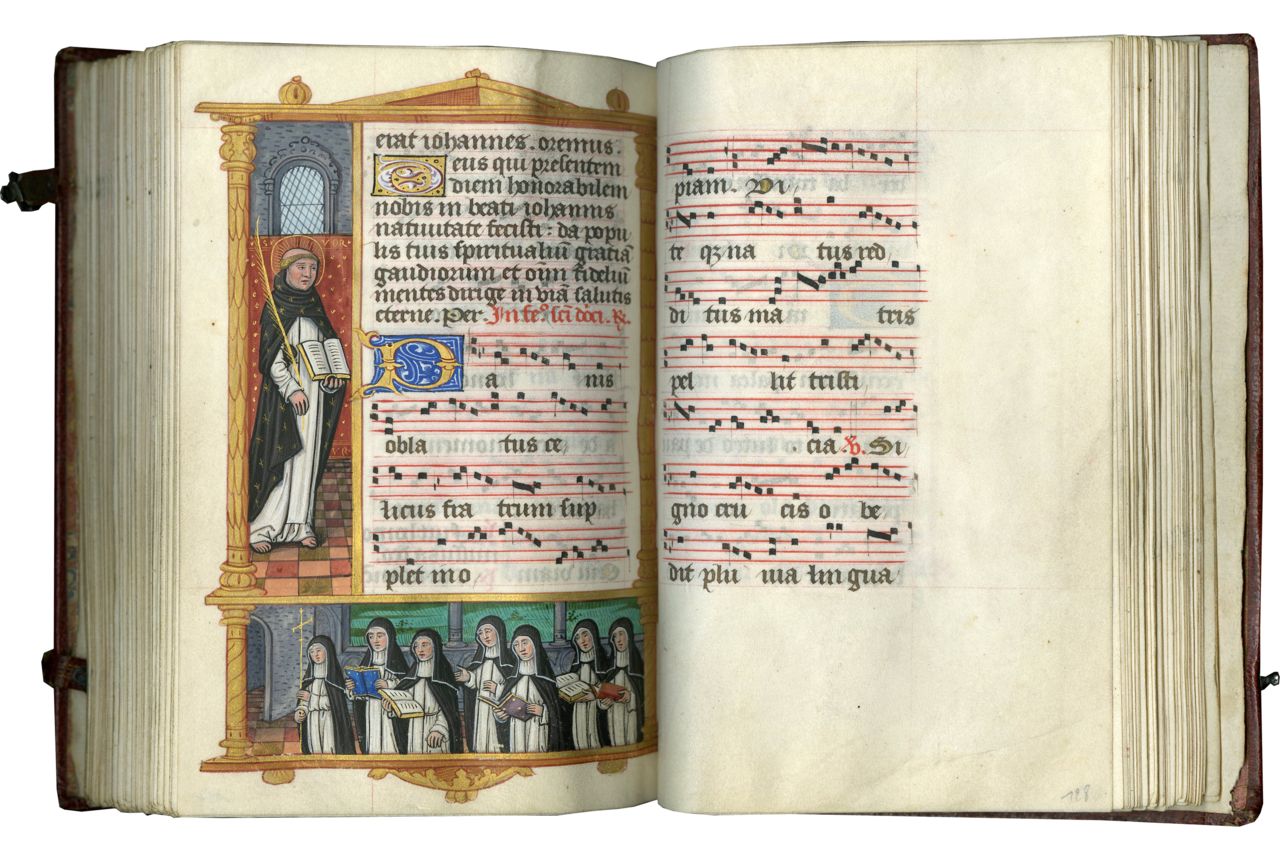 erat iohannes. oremus.
Deus qui presentem
diem honorabilem
nobis in beati iohannis
natiuitate fecisti: da popu
lis tuis spiritualiū gratiā
gaudiorum et oīm fideliū
mentes dirige in viā salutis
eterne. Per. In fe° scī dōci. ℟.
Pa nis
obla tus ce
licus fra trum sup
plet ino
piam. Vi
te qꝫ na tus red
di tus ma tris
pel lit tristi
cia ℣. Si
gno cru cis o be
dit plu uia lin gua
128